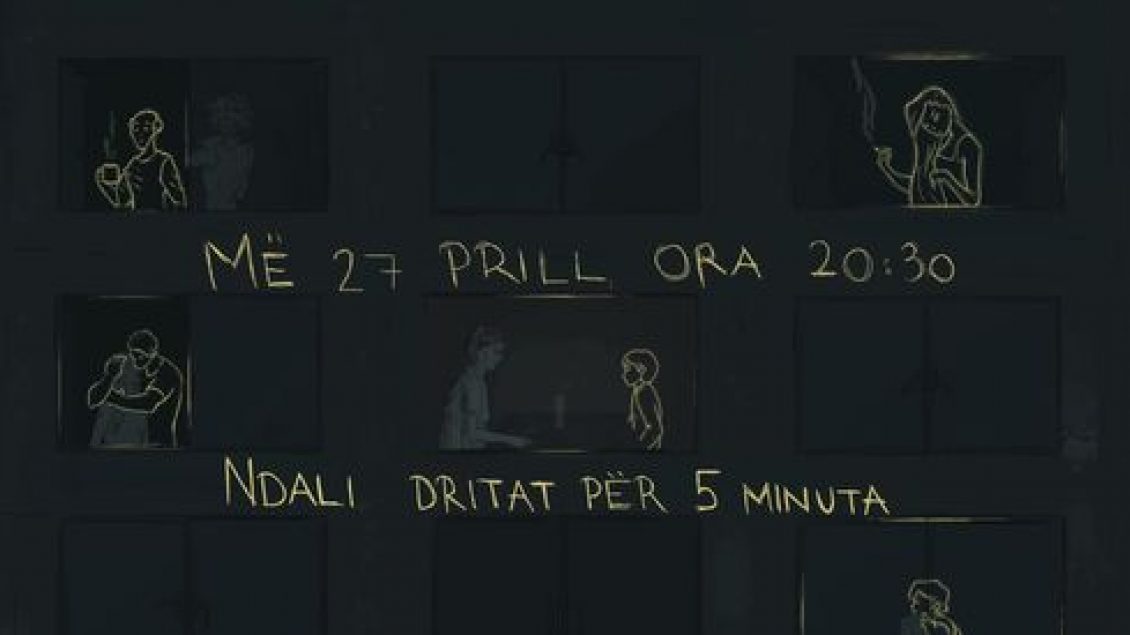 MË 27 PRILL ORA 20:30
NDALI DRITAT PËR 5 MINUTA